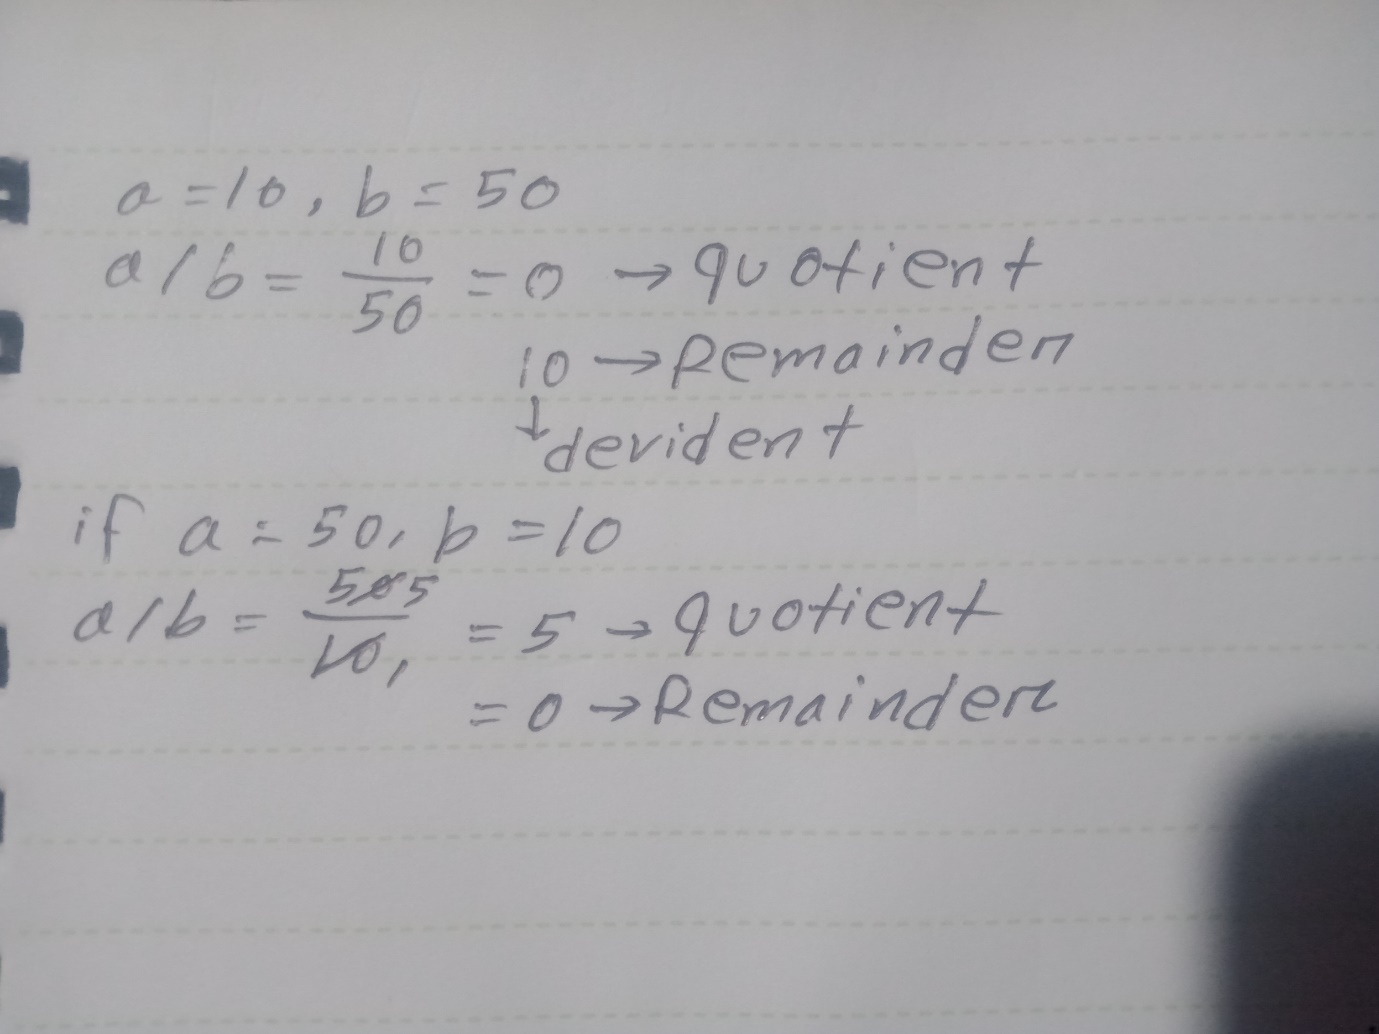 a = 10, b = 50
a/b = 10/50 = 0 → quotient
10 → Remainder
↓ devident
if a = 50, b = 10
a/b = 50 5/10, = 5 → quotient
= 0 → Remainder